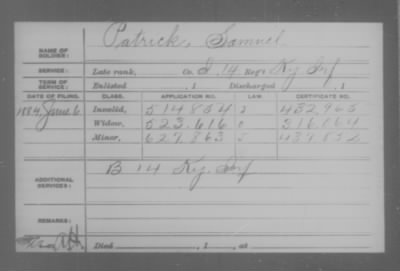 NAME OF SOLDIER: Patrick, Samuel
SERVICE: Late rank, Co. I, 14 Reg't Ky Inf
TERM OF SERVICE: Enlisted , 1 Discharged , 1
DATE OF FILING. CLASS. APPLICATION NO. LAW. CERTIFICATE NO.
1884 June 6 Invalid, 514.834 432.965
Widow, 523.616 316.064
Minor, 629.863 439.852
ADDITIONAL SERVICES: B 14 Ky. Inf
REMARKS:
Died , 1 , at